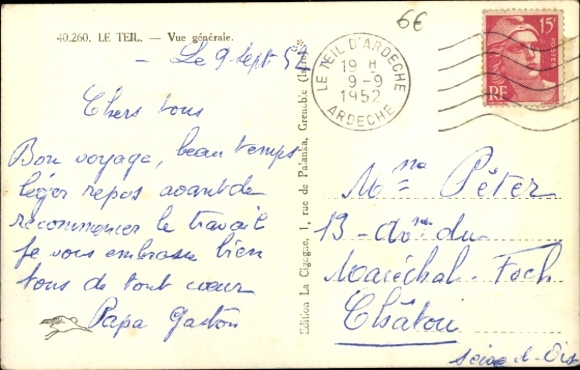 40.260. LE TEIL. — Vue générale.
— Le 9 Sept 52
Chers tous
Bon voyage, beau temps
léger repos avant de
recommencer le travail
Je vous embrasse bien
tous de tout cœur
Papa Gaston
Edition La Cigogne, 1, rue de Palanka, Grenoble (Isère)
6€
LE TEIL D'ARDECHE
19 H
9-9
1952
ARDECHE
15F
POSTES
RF
Mme Péter
13 - Ave du
Maréchal-Foch
Châtou
Seine-et-Oise